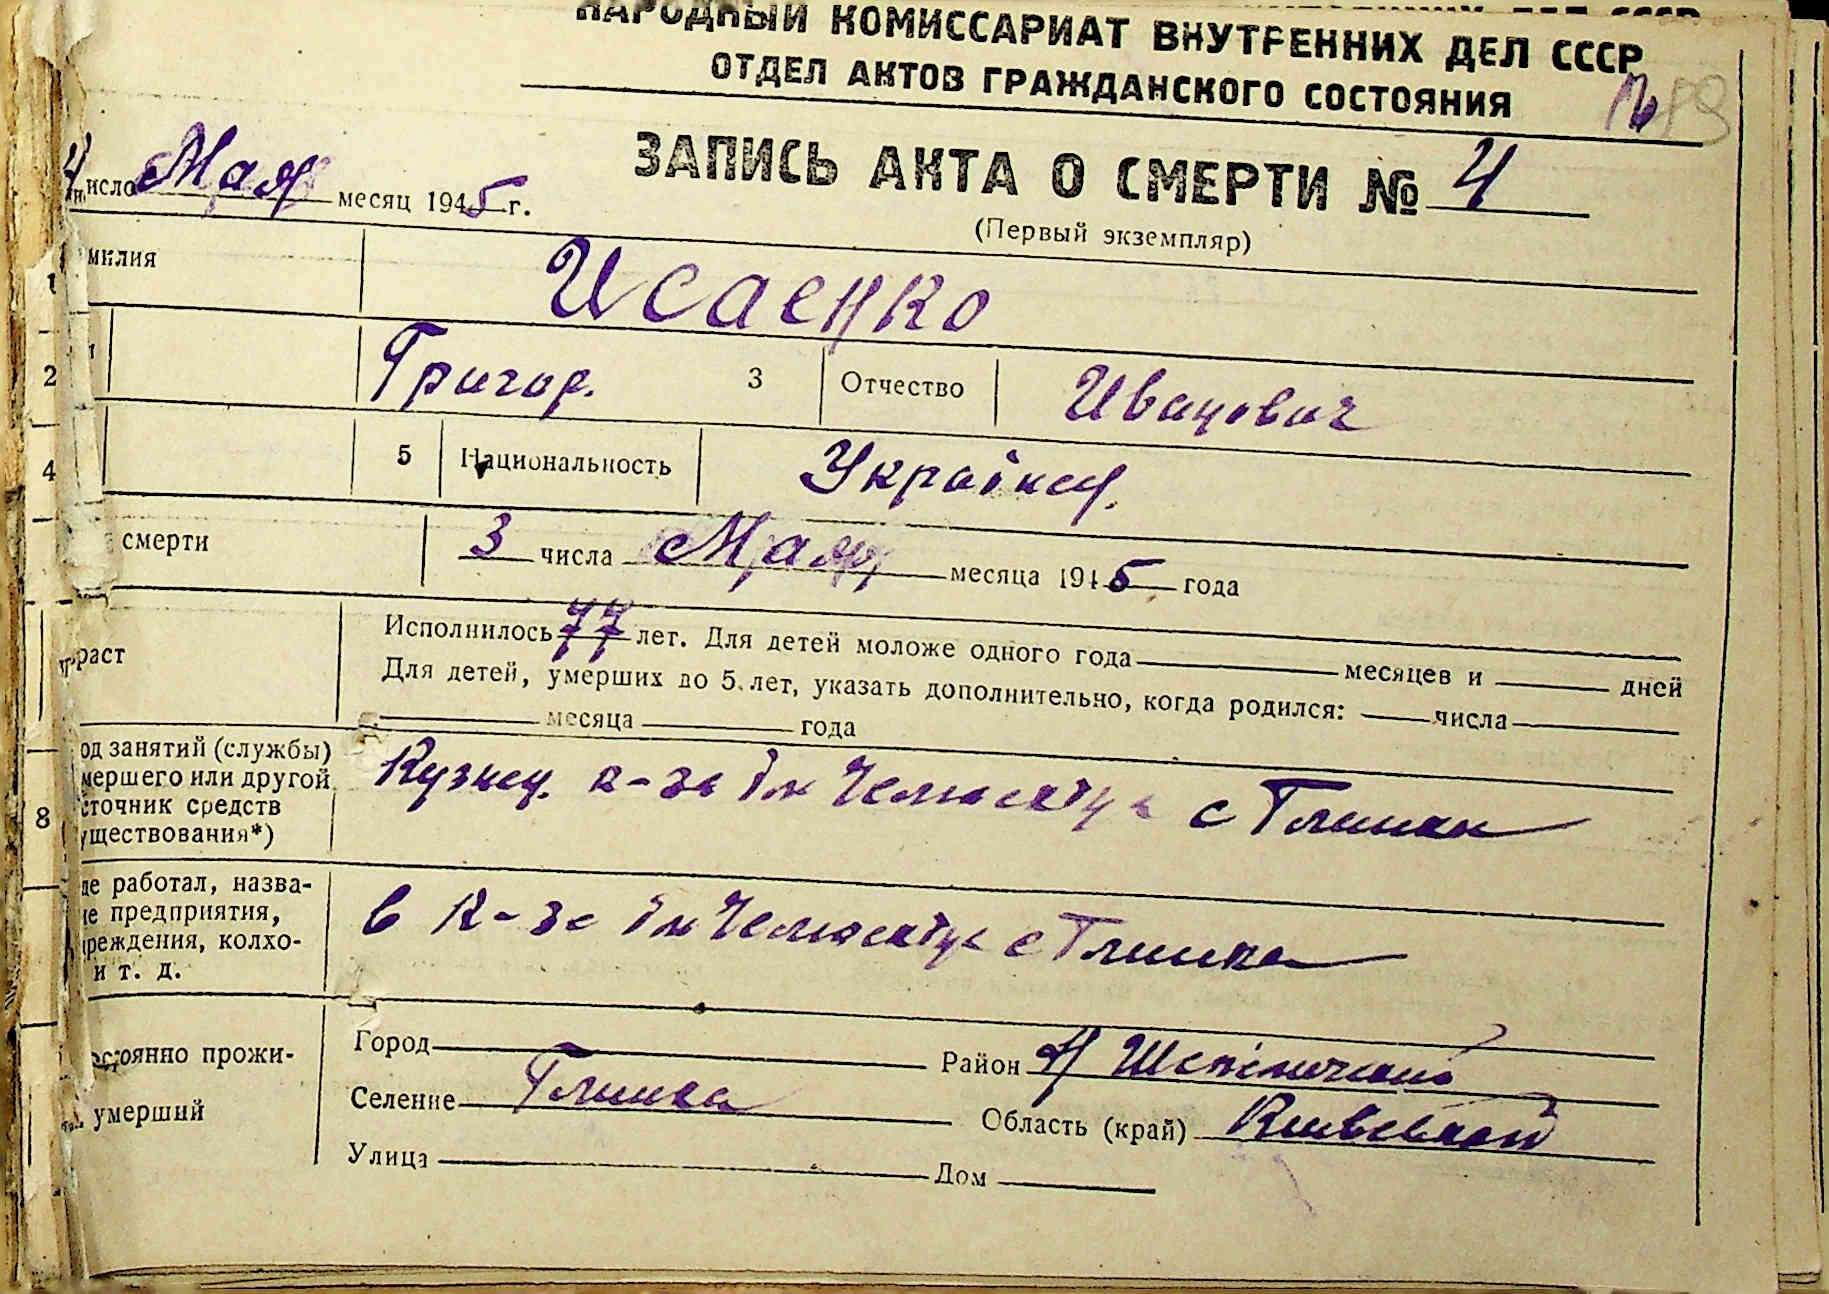 НАРОДНЫЙ КОМИССАРИАТ ВНУТРЕННИХ ДЕЛ СССР
ОТДЕЛ АКТОВ ГРАЖДАНСКОГО СОСТОЯНИЯ
ЗАПИСЬ АКТА О СМЕРТИ № 4
4 число Мая месяц 1945 г.
(Первый экземпляр)
1 милия Исаенко
2 Григор. 3 Отчество Иванович
4 5 Национальность Українец.
смерти 3 числа Мая месяца 1945 года
раст Исполнилось 77 лет. Для детей моложе одного года месяцев и дней
Для детей, умерших до 5 лет, указать дополнительно, когда родился: числа
месяца года
од занятий (службы)
мершего или другой
сточник средств
8 уществования*)
Кузнец. к-за Ім Челюскінц с Глинки
де работал, назва-
ие предприятия,
чреждения, колхо-
и т. д.
в к-зе Ім Челюскінц с Глинка
остоянно прожи-
умерший
Город Район Н Шепіничский
Селение Глинка Область (край) Киевской
Улица Дом